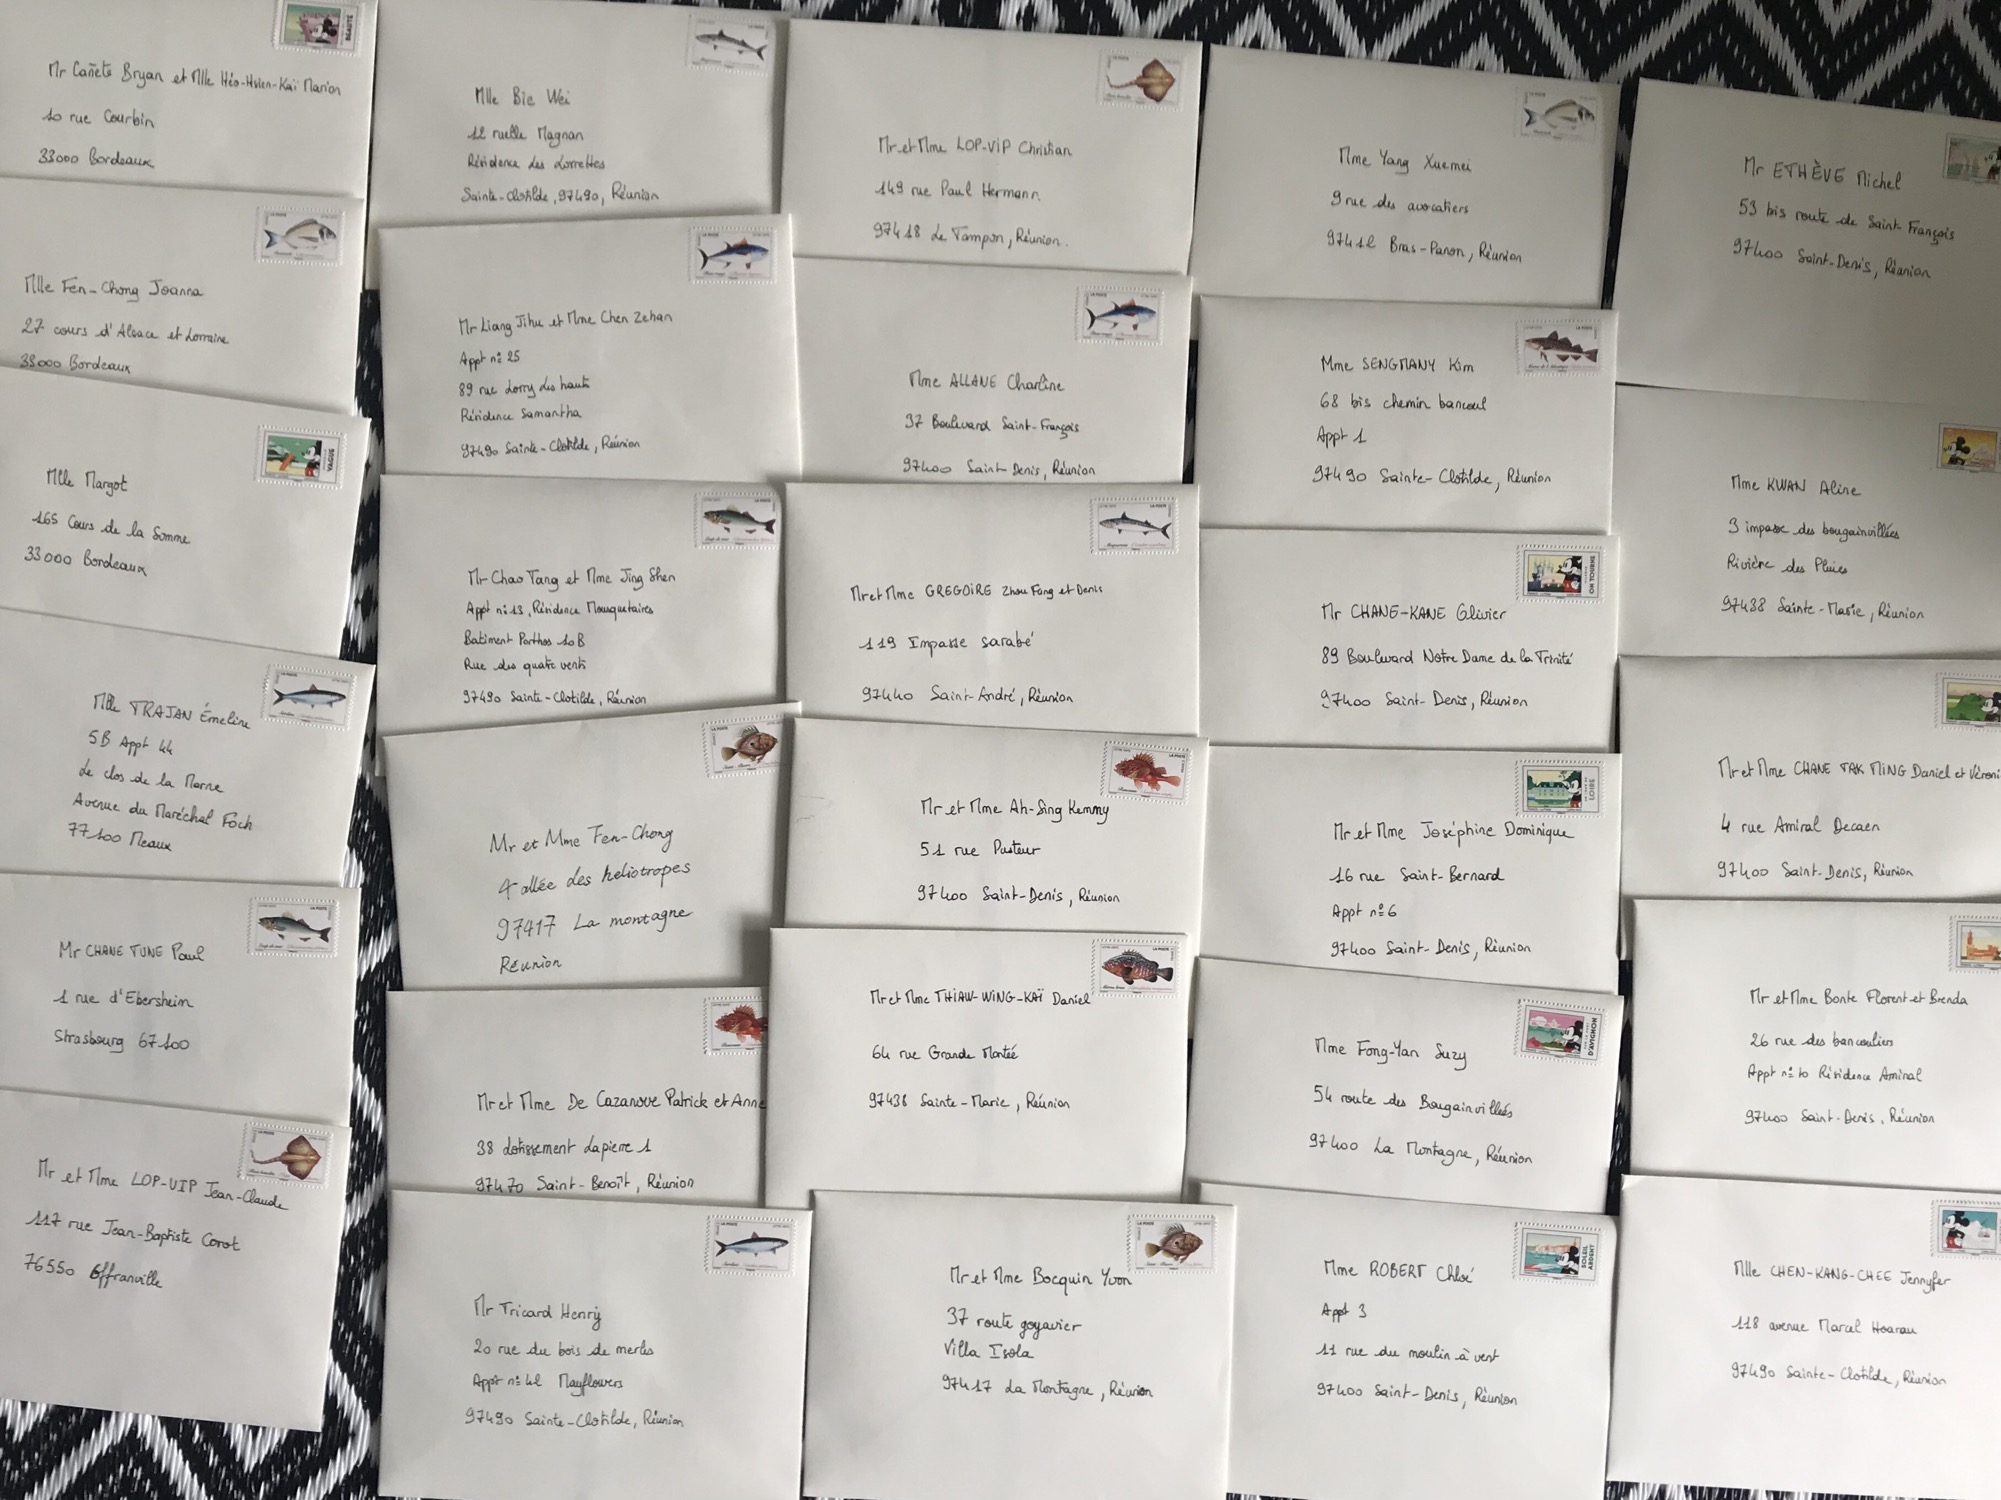 Mr Cañete Bryan et Mlle Héo-Hsien-Kaï Marion
10 rue Courbin
33000 Bordeaux
Mlle Fen-Chong Joanna
27 cours d'Alsace et Lorraine
33000 Bordeaux
VAGUE
Mlle Margot
165 Cours de la Somme
33000 Bordeaux
Mlle TRAJAN Émeline
5B Appt 44
Le clos de la Marne
Avenue du Maréchal Foch
77100 Meaux
LA POSTE
Mr CHANE TUNE Paul
1 rue d'Ebersheim
Strasbourg 67100
LA POSTE
Mr et Mme LOP-VIP Jean-Claude
117 rue Jean-Baptiste Corot
76550 Offranville
Mlle Bie Wei
12 ruelle Magnan
Résidence des Lorrettes
Sainte-Clotilde, 97490, Réunion
LA POSTE
Mr Liang Jihu et Mme Chen Zehan
Appt n° 25
89 rue Lorry les hauts
Résidence Samantha
97490 Sainte-Clotilde, Réunion
LA POSTE
Mr Chao Tang et Mme Jing Shen
Appt n° 13, Résidence Mousquetaires
Batiment Porthos 10B
Rue des quatre vents
97490 Sainte-Clotilde, Réunion
LA POSTE
Mr et Mme Fen-Chong
4 allée des heliotropes
97417 La montagne
Réunion
Mr et Mme De Cazanove Patrick et Anne
38 Lotissement Lapierre 1
97470 Saint-Benoît, Réunion
LA POSTE
Mr Tricard Henrij
20 rue du bois de merles
Appt n° 42 Mayflowers
97490 Sainte-Clotilde, Réunion
Mr et Mme LOP-VIP Christian
149 rue Paul Hermann
97418 Le Tampon, Réunion.
LA POSTE
Mme ALLANE Charline
37 Boulevard Saint-François
97400 Saint-Denis, Réunion
LA POSTE
Mr et Mme GREGOIRE Zhou Fang et Denis
119 Impasse Sarabé
97440 Saint-André, Réunion
LA POSTE
Mr et Mme Ah-Sing Kemmy
51 rue Pasteur
97400 Saint-Denis, Réunion
LA POSTE
Mr et Mme THIAW-WING-KAÏ Daniel
64 rue Grande Montée
97438 Sainte-Marie, Réunion
LA POSTE
Mr et Mme Bocquin Yvon
37 route goyavier
Villa Isola
97417 La Montagne, Réunion
Mme Yang Xuemei
9 rue des avocatiers
97412 Bras-Panon, Réunion
LA POSTE
Mme SENGMANY Kim
68 bis chemin bancoul
Appt 1
97490 Sainte-Clotilde, Réunion
ON TOURNE
Mr CHANE-KANE Olivier
89 Boulevard Notre Dame de la Trinité
97400 Saint-Denis, Réunion
LOIRE
Mr et Mme Joséphine Dominique
16 rue Saint-Bernard
Appt n° 6
97400 Saint-Denis, Réunion
D'AVIGNON
Mme Fong-Yan Suzy
54 route des Bougainvilleés
97400 La Montagne, Réunion
SOLEIL
ARDENT
Mme ROBERT Chloé
Appt 3
11 rue du moulin à vent
97400 Saint-Denis, Réunion
Mr ETHÈVE Michel
53 bis route de Saint-François
97400 Saint-Denis, Réunion
Mme KWAN Aline
3 impasse des bougainvillées
Rivière des Pluies
97438 Sainte-Marie, Réunion
Mr et Mme CHANE TAK MING Daniel et Véroni
4 rue Amiral Decaen
97400 Saint-Denis, Réunion
Mr et Mme Bonte Florent et Brenda
26 rue des bancouliers
Appt n° 10 Résidence Amiral
97400 Saint-Denis, Réunion
Mlle CHEN-KANG-CHEE Jennyfer
118 avenue Marcel Hoarau
97490 Sainte-Clotilde, Réunion